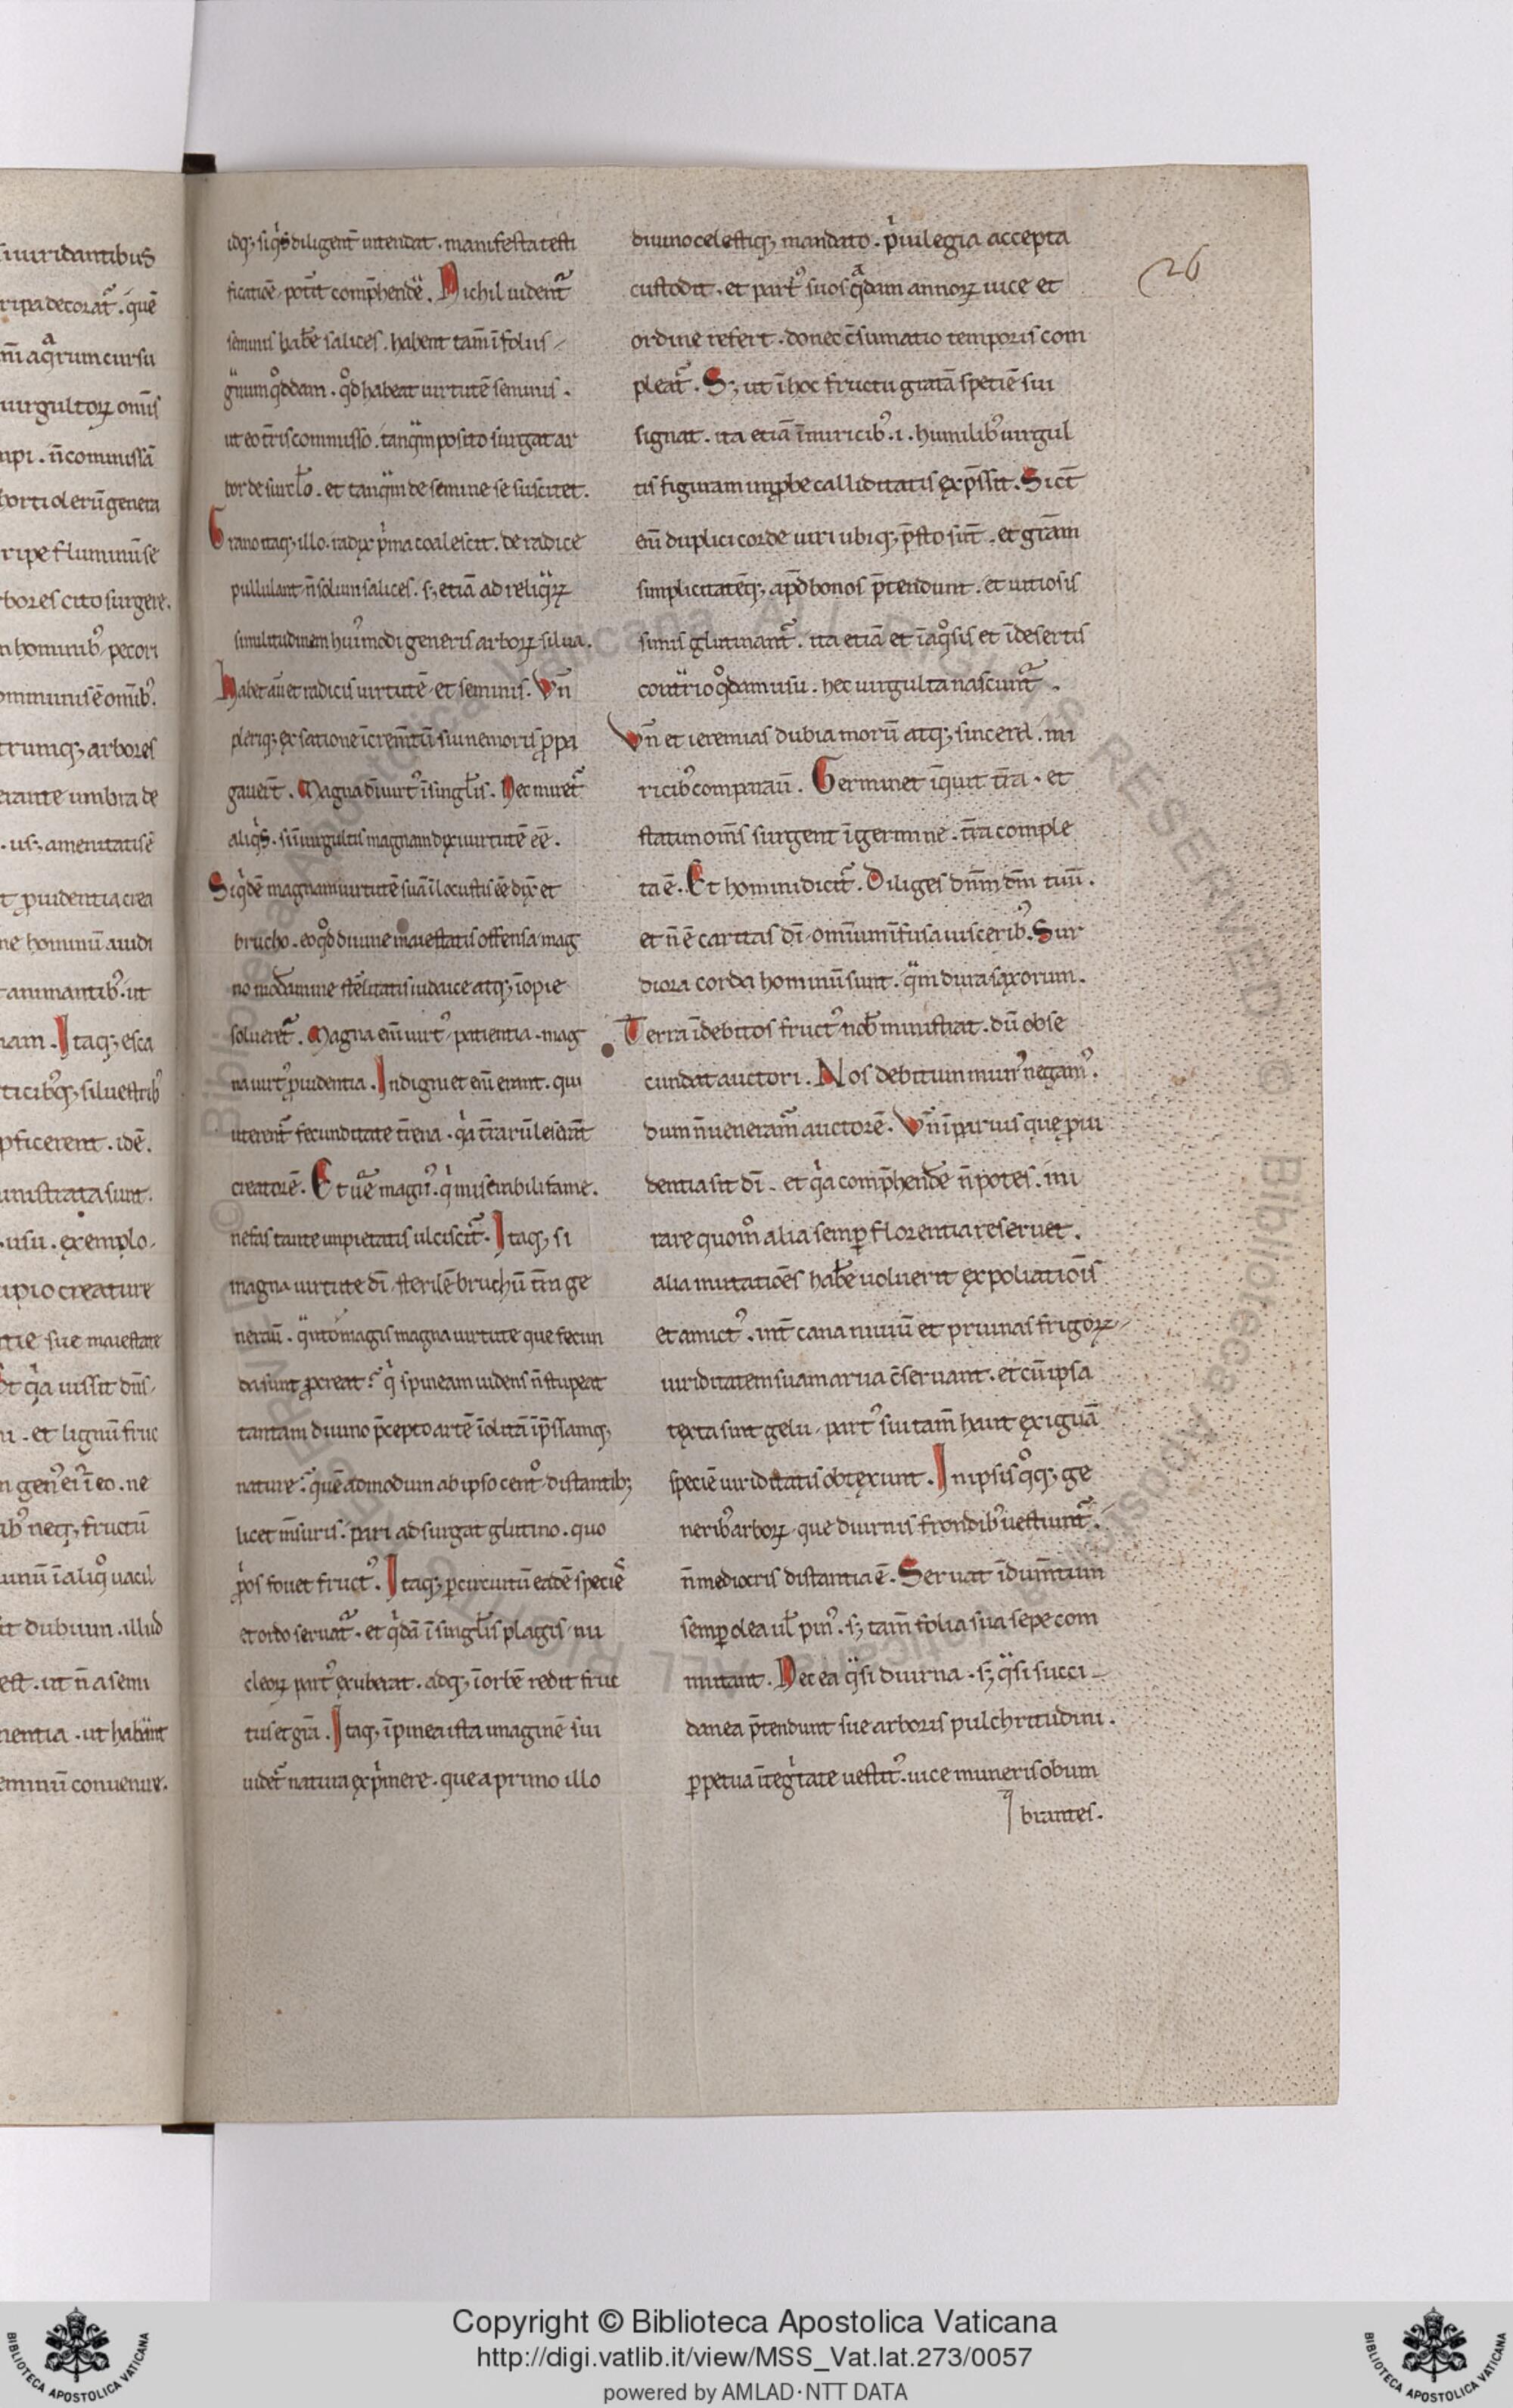 iuuridantibus
ripa decorat᷑. quē
nꝫ aqᷓrum cursu
uirgultoꝝ omīs
npi. n̄ commissā
horti olerū genera
ripe fluminū se
bores cito surgere.
n hominibꝰ pecori
ommunis ē omībꝰ.
trumqꝫ arbores
erante umbra de
. usꝫ amenitatis ē
t ꝓuidentia crea
ne hominū auidi
animantibꝰ. ut
nam. Itaqꝫ esca
ticibꝰqꝫ siluestribꝰ
ꝓficerent. idē.
inistrata sunt.
usu. exemplo.
ipio creature
tie sue maiestate
Et qͥa iussit dn̄s
ni. et lignū fruc
n genꝰ eiꝰ ī eo. ne
ibꝰ neqꝫ fructū
unū ī aliqͦ uacil
it dubium. illud
est. ut n̄ a semi
nentia. ut habeant
eminū conuenire.
idqꝫ siqͥs diligent̄ intendat. manifesta testi
ficatiōe pot̄it comp̄hendē. Nichil uident᷑
seminis habēe salices. habent tam̄ ī foliis
gͣnum qͦddam. qͦd habeat uirtutē seminis.
ut eo t̄ris commisso. tanqͣm posito surgat ar
bor de surcl̄o. et tanqͣm de semine se suscitet.
Grano itaqꝫ illo. radix pͥma coalescit. de radice
pullulant n̄ solum salices. sꝫ etiā ad reliqͣꝝ
similitudinem huiꝰmodi generis arboꝝ silua.
Habet aū et radicis uirtutē et seminis. Vn̄
pleriqꝫ ex satione īcrem̄tū sui nemoris ꝓpa
gauer̄t. Magna dī uirtꝰ ī singl̄is. Nec miret᷑
aliqͥs. si ī uirgultis magnam dixi uirtutē eē.
Siqͥdē magnam uirtutē suā ī locustis eē dix̄ et
brucho. eo qͦd diuine maiestatis offensa mag
no mōdamine st̄elitatis iudaice atqꝫ īopie
solueret᷑. Magna enī uirtꝰ patientia. mag
na uirtꝰ ꝓuidentia. Indigni et enī erant. qui
uterent᷑ fecunditate t̄rena. qͥa t̄rarū leserāt
creatorē. Et ue᷑ magnꝰ. qͥ miserabili fame.
nefas tante impietatis ulciscit᷑. Itaqꝫ si
magna uirtute dī sterilē bruchū t̄ra ge
nerauit. qͣntomagis magna uirtute que fecun
da sunt ꝓcreat. qͥ spineam uidens n̄ stupeat
tantam diuino p̄cepto artē īolitā īp̄ssamqꝫ
nature. quēadmodum ab ipso centͦ distantibꝫ
licet m̄suris. pari adsurgat glutino. quo
ꝓͥos fouet fructꝰ. Itaqꝫ ꝑ circuitū eadē speciē
et ordo seruat᷑. et qͥdā ī singl̄is plagis nu
cleoꝝ partꝰ exuberat. adqꝫ ī orbē redit fruc
tus et gr̄a. Itaqꝫ ī pinea ista imaginē sui
uidet᷑ natura expͥmere. que a primo illo
diuino celestiqꝫ mandato. pͥuilegia accepta
custodit. et partꝰ suos qᷓdam annoꝝ uice et
ordine refert. donec c̄sumatio temporis com
pleat᷑. Sꝫ ut ī hoc fructu gratā speciē sui
signat. ita etiā ī miricibꝰ. i. humilibꝰ uirgul
tis figuram improbe calliditatis exp̄ssit. Sict̄
enī duplici corde uiri ubiqꝫ p̄sto sīt. et grām
simplicitatēqꝫ apd̄ bonos p̄tendunt. et uitiosis
simis glutinant᷑. ita etiā et ī aqͦsis et ī desertis
contrͣrio qͦdam usu. hec uirgulta nascunt᷑.
Vn̄ et ieremias dubia morū atqꝫ sincerel. mi
ricibꝰ comparauit. Germinet īquit t̄ra. et
statim om̄s surgent ī germine. t̄ra comple
ta ē. Et homini dicit᷑. Diliges dn̄m dm̄ tuū.
et n̄ ē caritas dī. omniumīfusa uisceribꝰ. Sur
diora corda hominū sunt. qͣm dura saxorum.
Terra īdebitos fructꝰ nob̄ ministrat. dū obse
cundat auctori. Nos debitum munꝰ negamꝰ.
dum n̄ ueneramr᷑ auctorē. Vn̄ ī paruis que ꝓui
dentia sit dī. et qͥa comp̄hendēe n̄ potes. mi
rare quom̄ alia semꝑ florentia reseruet.
alia mutatiōes habēe uoluerit expoliatiōis
et amictꝰ. int̄ cana niuiū et pruinas frigoꝝ
uiriditatem suam arua c̄seruant. et cū ipsa
texta sint gelu. partꝰ sui tam̄ haut exiguā
speciē uiriditatis obtexunt. In ipsis qͦqꝫ ge
neribꝰ arboꝝ que diurnis frondibꝰ uestiunt᷑.
n̄ mediocris distantia ē. Seruat īdum̄tum
semꝑ olea ul̄ pinꝰ. sꝫ tam̄ folia sua sepe com
mutant. Nec ea qͣsi diurna. sꝫ qͣsi succi
danea p̄tendunt sue arboris pulchritudini.
ꝑpetua ītegͥtate uestitꝰ. uice muneris obum
brantes.
26
Copyright © Biblioteca Apostolica Vaticana
http://digi.vatlib.it/view/MSS_Vat.lat.273/0057
powered by AMLAD·NTT DATA
BIBLIOTECA APOSTOLICA VATICANA
BIBLIOTECA APOSTOLICA VATICANA